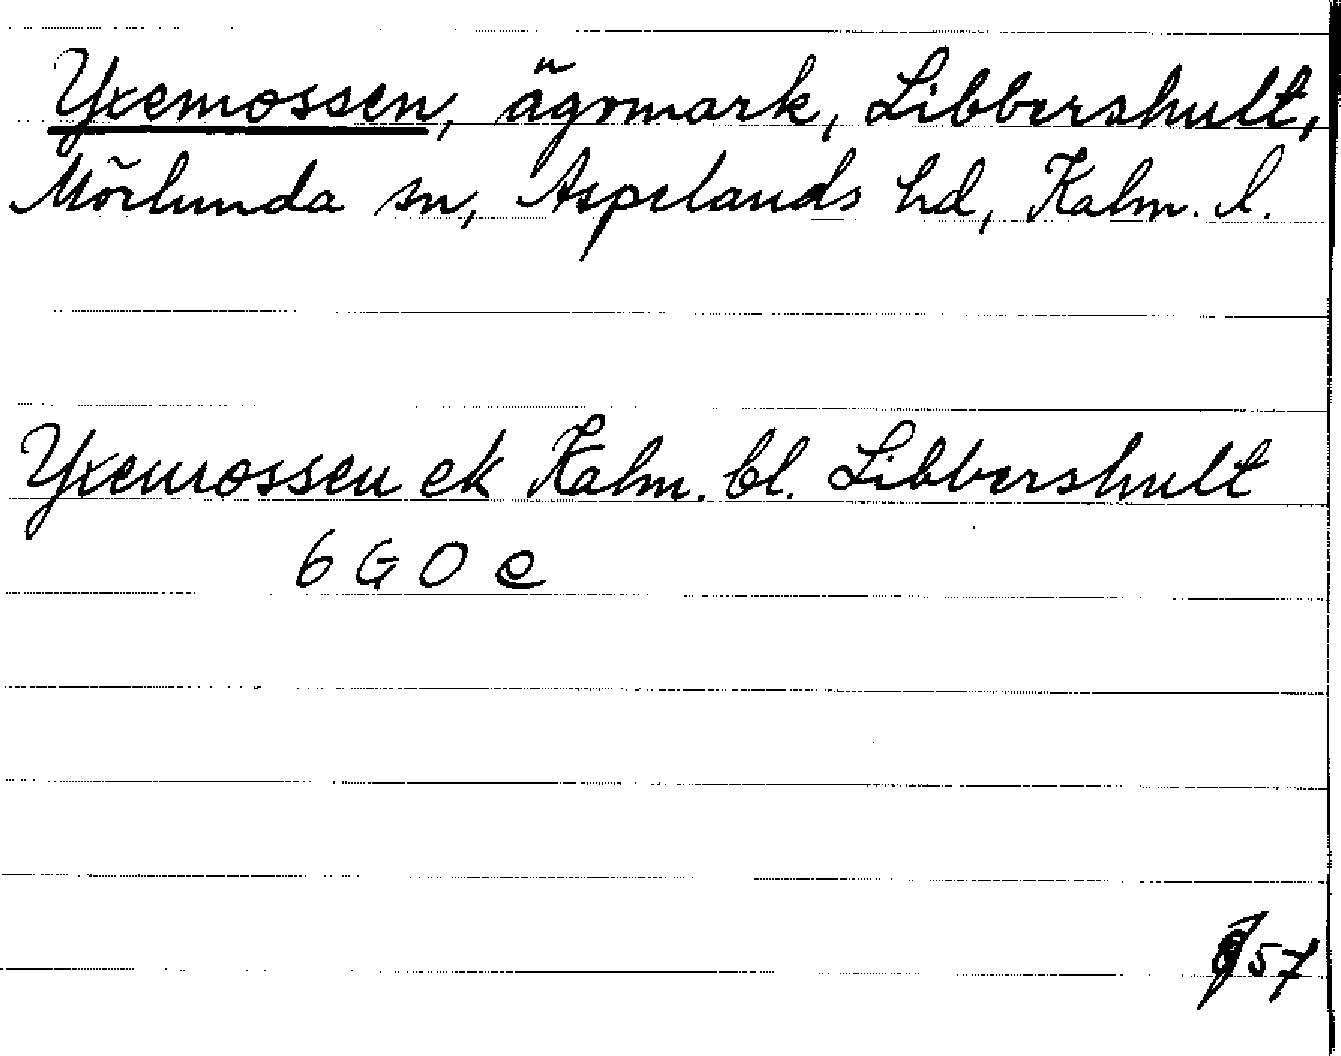 Yxemossen, ägomark, Libbershult,
Mörlunda sn, Aspelands hd, Kalm. l.
Yxemossen ek Kalm. bl. Libbershult
6 G O e
57